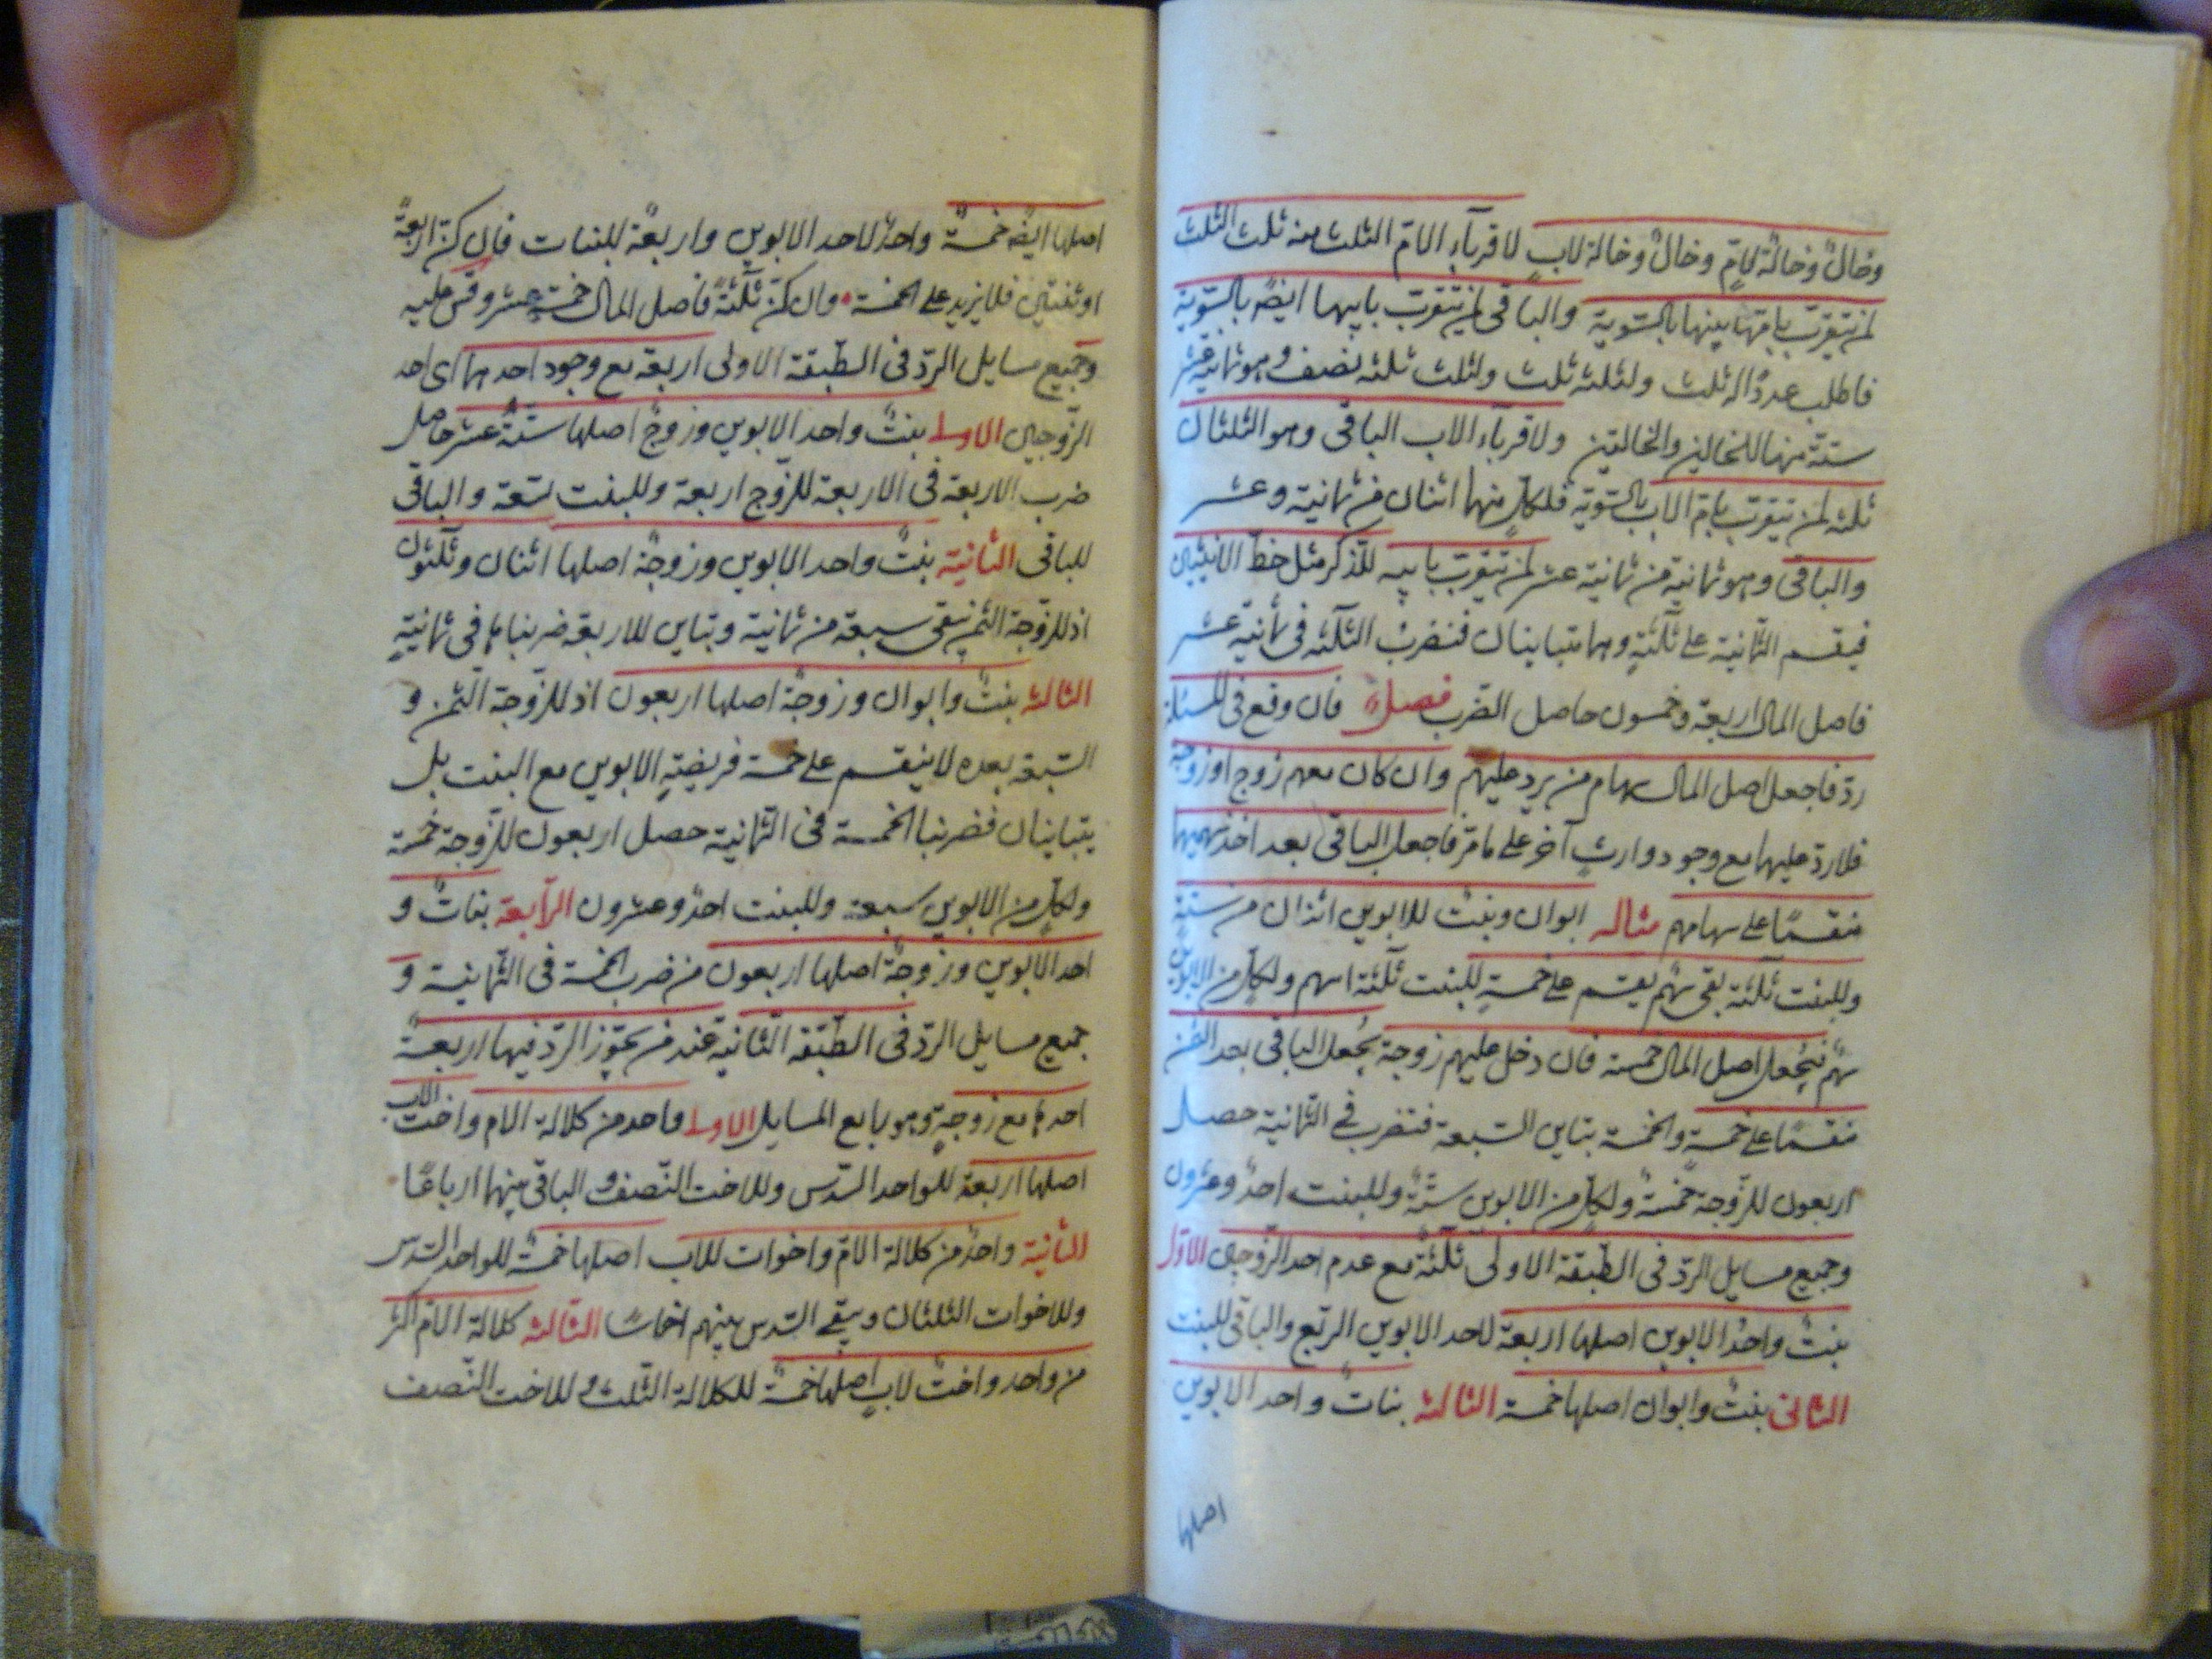 وخالٌ وخالةٌ لامٍّ وخالٌ وخالة لابٍ لاقرباءِ الامّ الثلث منه ثلث الثلث
لمن يتقرّب بامّها بينهما بالسّوية والباقى لمن يتقرّب بابيها ايضًا بالسّوية
فاطلب عددًا له ثلث ولثلثه ثلث ولثلث ثلثه نصف وهو ثمانية عشر
ستة منها للخالين والخالتين ولاقرباء الاب الباقى وهو الثلثان
ثلثه لمن يتقرّب بامّ الاب بالسّوية فلكلٍ منهما اثنان من ثمانية وعشر
والباقى وهو ثمانية من ثمانية عشر لمن يتقرّب بابيه للذّكر مثل حظّ الانثيين
فيقسم الثّمانية على ثلثةٍ وهما متباينان فنضربُ الثلثة فى ثمانية عشر
فاصل المال اربعة وخمسون حاصل الضّرب فصلٌ فان وقع فى المسئلة
ردّ فاجعل اصل المال سهام من يردّ عليهم وان كان معهم زوج او زوجة
فلا ردّ عليهما مع وجود وارثٍ آخر على ما مرّ فاجعل الباقى بعد اخذ سهمهما
منقسمًا على سهامهم مثاله ابوان وبنتٌ للابوين اثنان من ستةٍ
وللبنت ثلثة بقى سهم يقسم على خمسةٍ للبنت ثلثة اسهم ولكلٍ من الابوين
سهم فيُجعل اصل المال خمسة فان دخل عليهم زوجة يُجعل الباقى بعد الثمن
منقسمًا على خمسة والخمسة يتباين السّبعة فتضرب فى الثّمانية حصل
اربعون للزّوجة خمسةٌ ولكلٍ من الابوين ستّةٌ وللبنت احدٌ وعشرون
وجميع مسايل الردّ فى الطّبقة الاولى ثلثةٌ مع عدم احد الزّوجين الاوّل
بنتٌ واحدُ الابوين اصلها اربعة لاحد الابوين الربّع والباقى للبنت
الثانى بنتٌ وابوان اصلها خمسة الثالثة بناتٌ واحد الابوين
اصلها
اصلها ايضًا خمسةٌ واحدٌ لاحد الابوين واربعةٌ للبنات فان كنّ اربعةً
او ثنتين فلا يزيد على الخمسة وان كنّ ثلثةً فاصل المال خمسة عشر وقس عليه
وجميع مسايل الردّ فى الطّبقة الاولى اربعة مع وجود احدهما اى احد
الزّوجين الاولى بنتٌ واحد الابوين وزوجٌ اصلها ستّةُ عشر حاصل
ضرب الاربعة فى الاربعة للزّوج اربعة وللبنت تسعة والباقى
للباقى الثانية بنتٌ واحد الابوين وزوجةٌ اصلها اثنان وثلثون
اذ للزّوجة الثّمن بقى سبعة من ثمانية وتباين للاربعة ضربناها فى ثمانيةٍ
الثالثة بنتٌ وابوان وزوجةٌ اصلها اربعون اذ للزّوجة الثّمن و
السّبعة بعده لا ينقسم على خمسة فريضةِ الابوين مع البنت بل
يتباينان فضربنا الخمسة فى الثّمانية حصل اربعون للزّوجة خمسة
ولكلٍ من الابوين سبعة وللبنت احدٌ وعشرون الرّابعة بناتٌ و
احد الابوين وزوجةٌ اصلها اربعون من ضرب الخمسة فى الثّمانية و
جميع مسايل الردّ فى الطّبقة الثّانية عند من يجوّز الردّ فيها اربعةٌ
احدها مع زوجةٍ وهو رابع المسايل الاولى واحد من كلالة الام واخت الاب
اصلها اربعة للواحد السّدس وللاخت النّصف والباقى بينهما ارباعًا
الثانية واحدٌ من كلالة الامّ واخوات للاب اصلها خمسةٌ للواحد السّدس
وللاخوات الثلثان ويبقى السّدس بينهم اخماسًا الثّالثة كلالة الامّ اكثر
من واحد واختٌ لابٍ اصلها خمسةٌ للكلالة الثّلث وللاخت النّصف